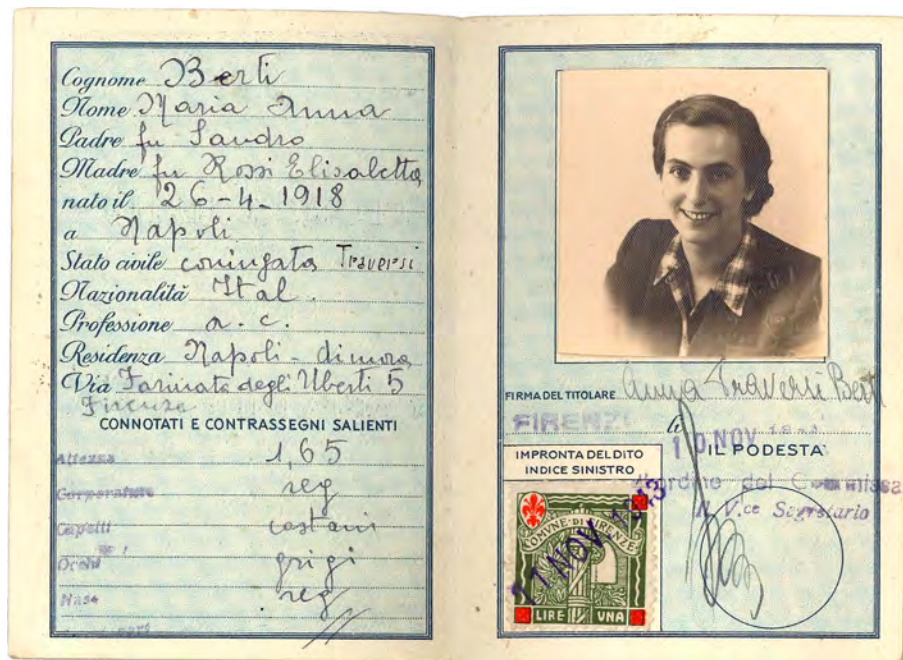 Cognome Berti
Nome Maria Anna
Padre fu Sandro
Madre fu Rossi Elisabetta
nato il 26-4-1918
a Napoli
Stato civile coniugata Traversi
Nazionalità Ital.
Professione a. c.
Residenza Napoli - dimora
Via Farinata degli Uberti 5
Firenze
CONNOTATI E CONTRASSEGNI SALIENTI
Altezza 1,65
Corporatura reg
Capelli castani
Occhi grigi
Naso reg
FIRMA DEL TITOLARE Anna Traversi Berti
FIRENZE li 10 NOV
IL PODESTÀ
IMPRONTA DEL DITO
INDICE SINISTRO
d'ordine del Commissa
Il V.ce Segretario
COMVNE·DI·FIRENZE
11 NOV 1943
LIRE VNA